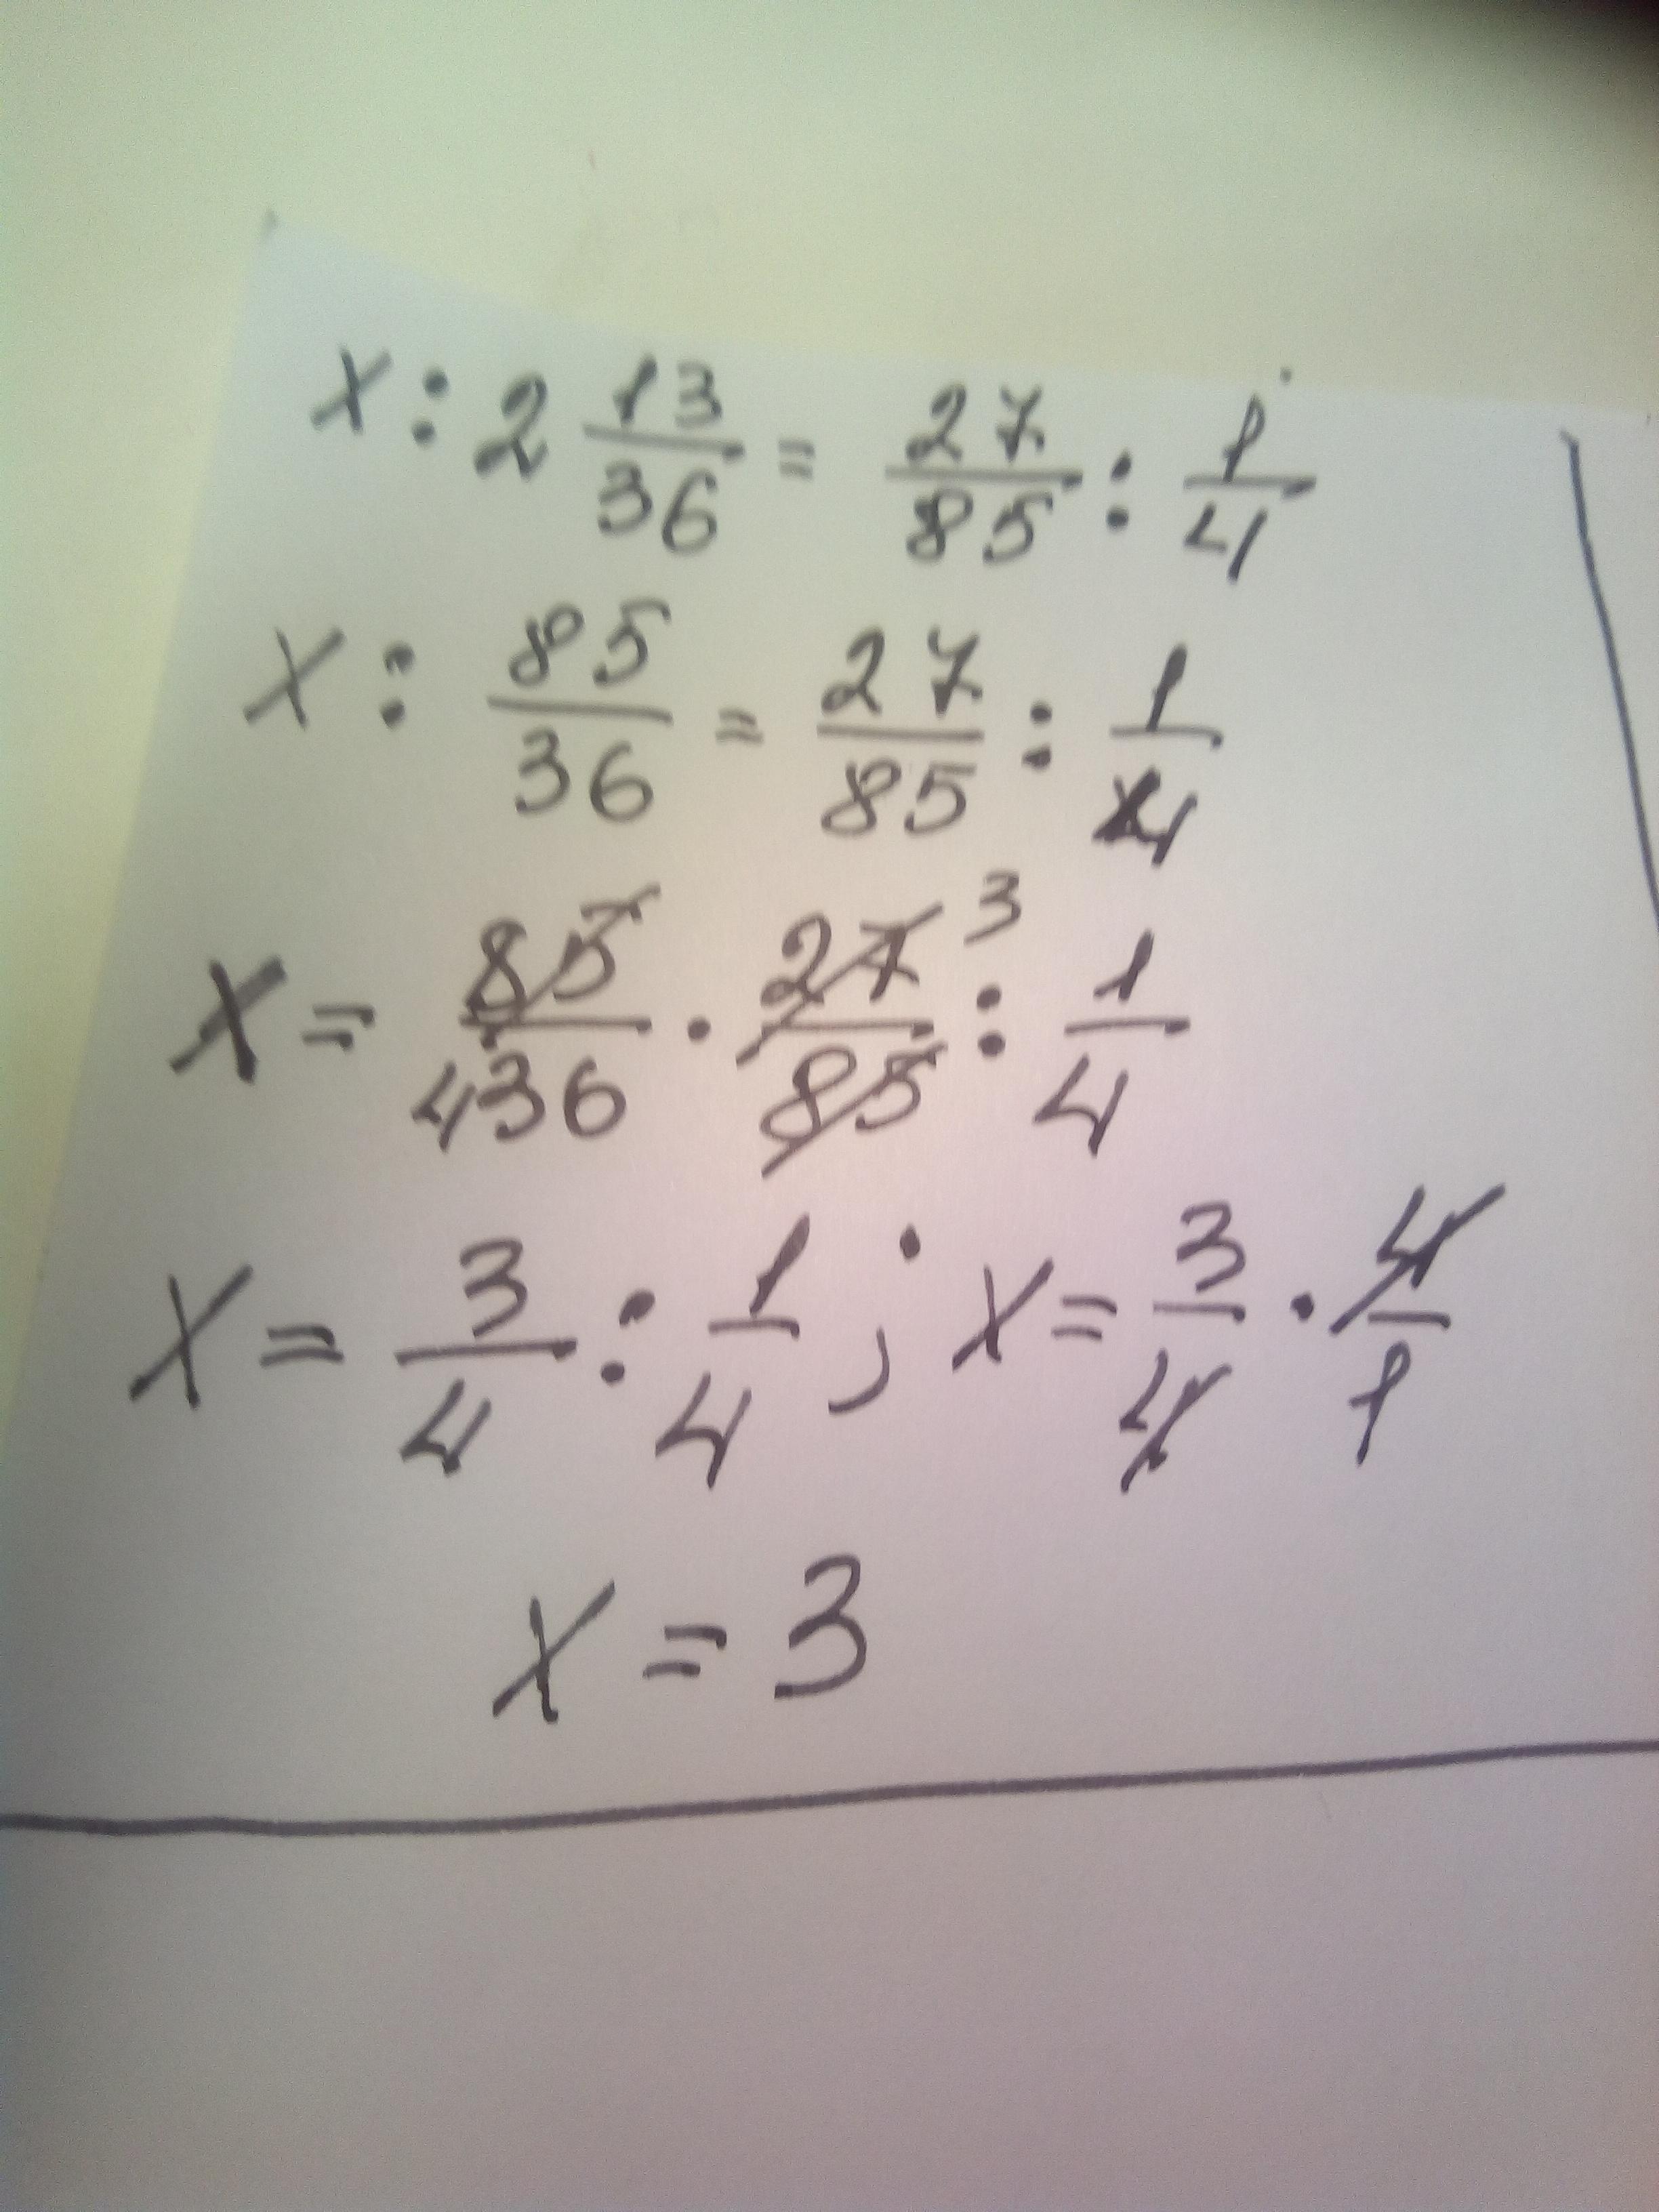 x : 2 13/36 = 27/85 : 1/4
x : 85/36 = 27/85 : 1/4
x = 85/4 36 · 27/85 3 : 1/4
x = 3/4 : 1/4 ; x = 3/4 · 4/1
x = 3